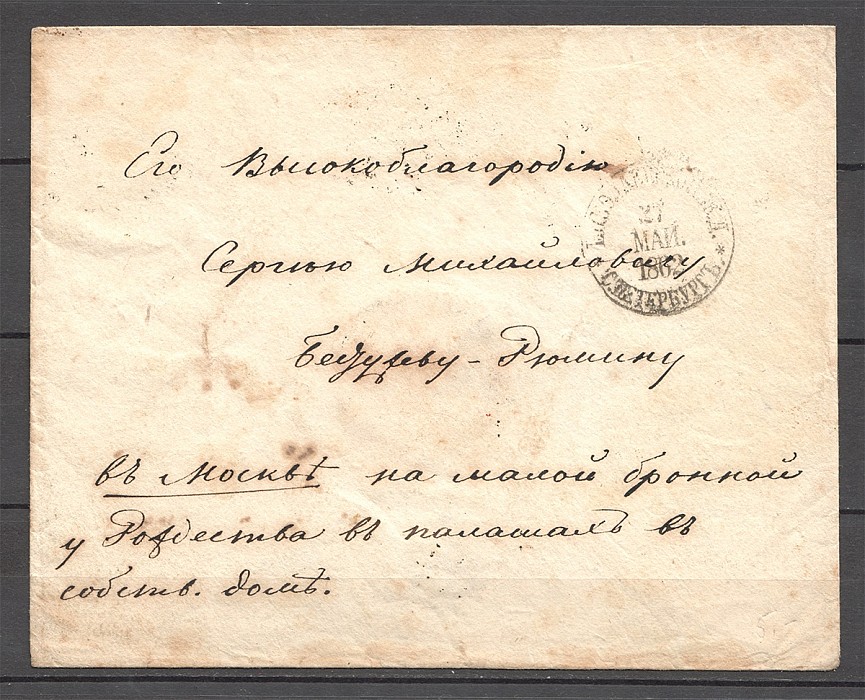 Его Высокоблагородію
27
МАЙ.
1862
С.ПЕТЕРБУРГЪ.
Сергѣю Михайловичу
Бестужеву-Рюмину
въ Москвѣ на малой бронной
у Рождества въ палашахъ въ
собств. домѣ.